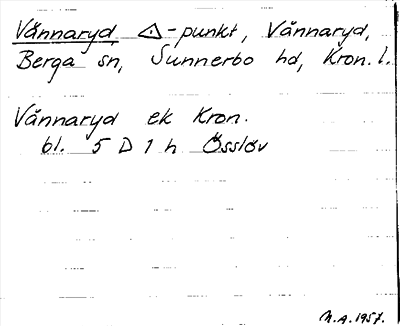 Vännaryd △-punkt, Vännaryd,
Berga sn, Sunnerbo hd, Kron. l.
Vännaryd ek Kron.
bl. 5 D 1 h Össlöv
M.A. 1957.